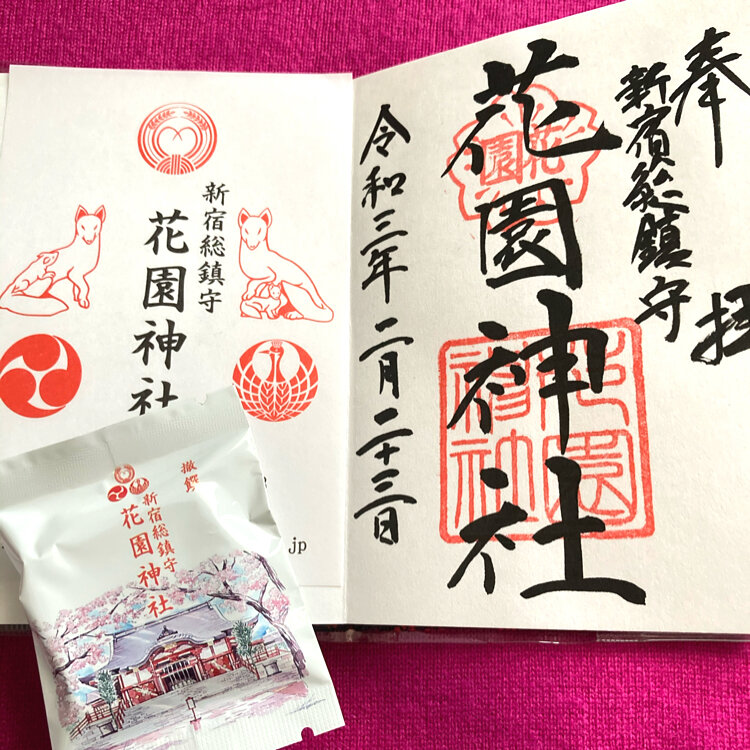 奉拝
新宿総鎮守
花園神社
令和三年二月二十三日
花園
花園神社
新宿総鎮守
花園神社
.jp
撤饌
新宿総鎮守
花園神社